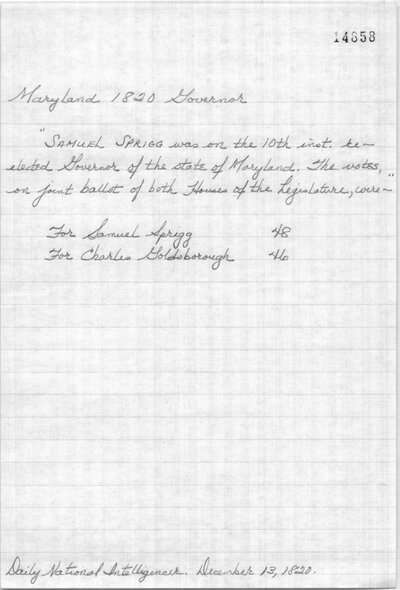 14858
Maryland 1820 Governor
"SAMUEL SPRIGG was on the 10th inst. re-
elected Governor of the state of Maryland. The votes,
on joint ballot of both Houses of the Legislature, were—"
For Samuel Sprigg 48
For Charles Goldsborough 46
Daily National Intelligencer. December 13, 1820.